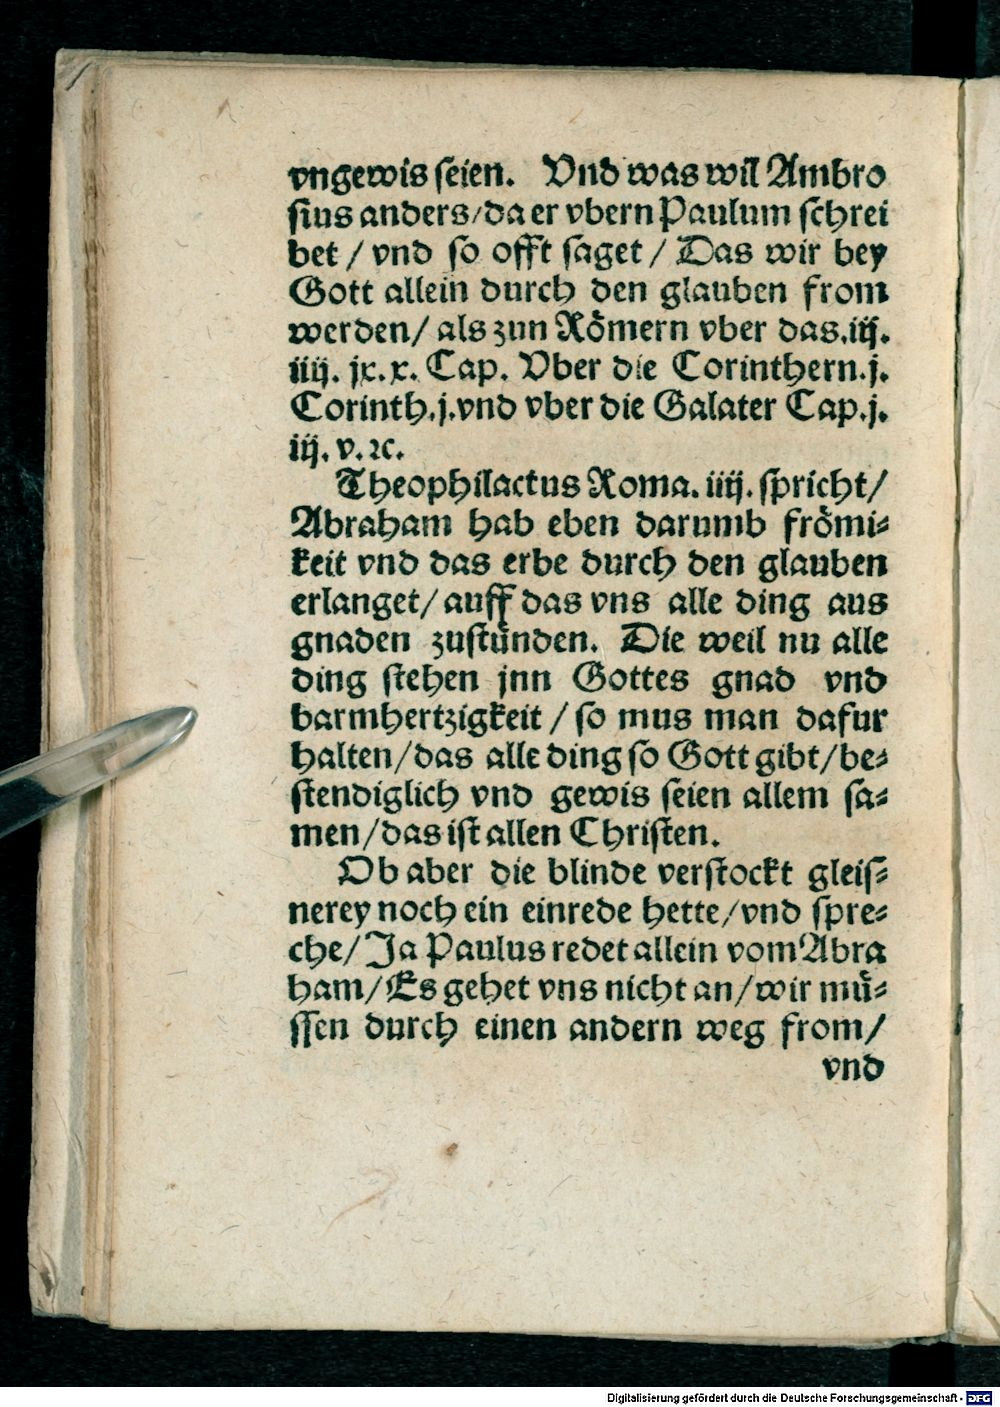 vngewis seien. Vnd was wil Ambro
sius anders/da er vbern Paulum schrei
bet / vnd so offt saget / Das wir bey
Gott allein durch den glauben from
werden/ als zun Rômern vber das.iij.
iiij. jx.x. Cap. Vber die Corinthern.j.
Corinth.j.vnd vber die Galater Cap.j.
iij. v. ꝛc.
Theophilactus Roma. iiij. spricht/
Abraham hab eben darumb frômi⸗
keit vnd das erbe durch den glauben
erlanget/ auff das vns alle ding aus
gnaden zustünden. Die weil nu alle
ding stehen jnn Gottes gnad vnd
barmhertzigkeit / so mus man dafur
halten/das alle ding so Gott gibt/be⸗
stendiglich vnd gewis seien allem sa⸗
men/das ist allen Christen.
Ob aber die blinde verstockt gleis⸗
nerey noch ein einrede hette/vnd spre⸗
che/ Ja Paulus redet allein vom Abra
ham/Es gehet vns nicht an/wir mü⸗
ssen durch einen andern weg from/
vnd
Digitalisierung gefördert durch die Deutsche Forschungsgemeinschaft - DFG